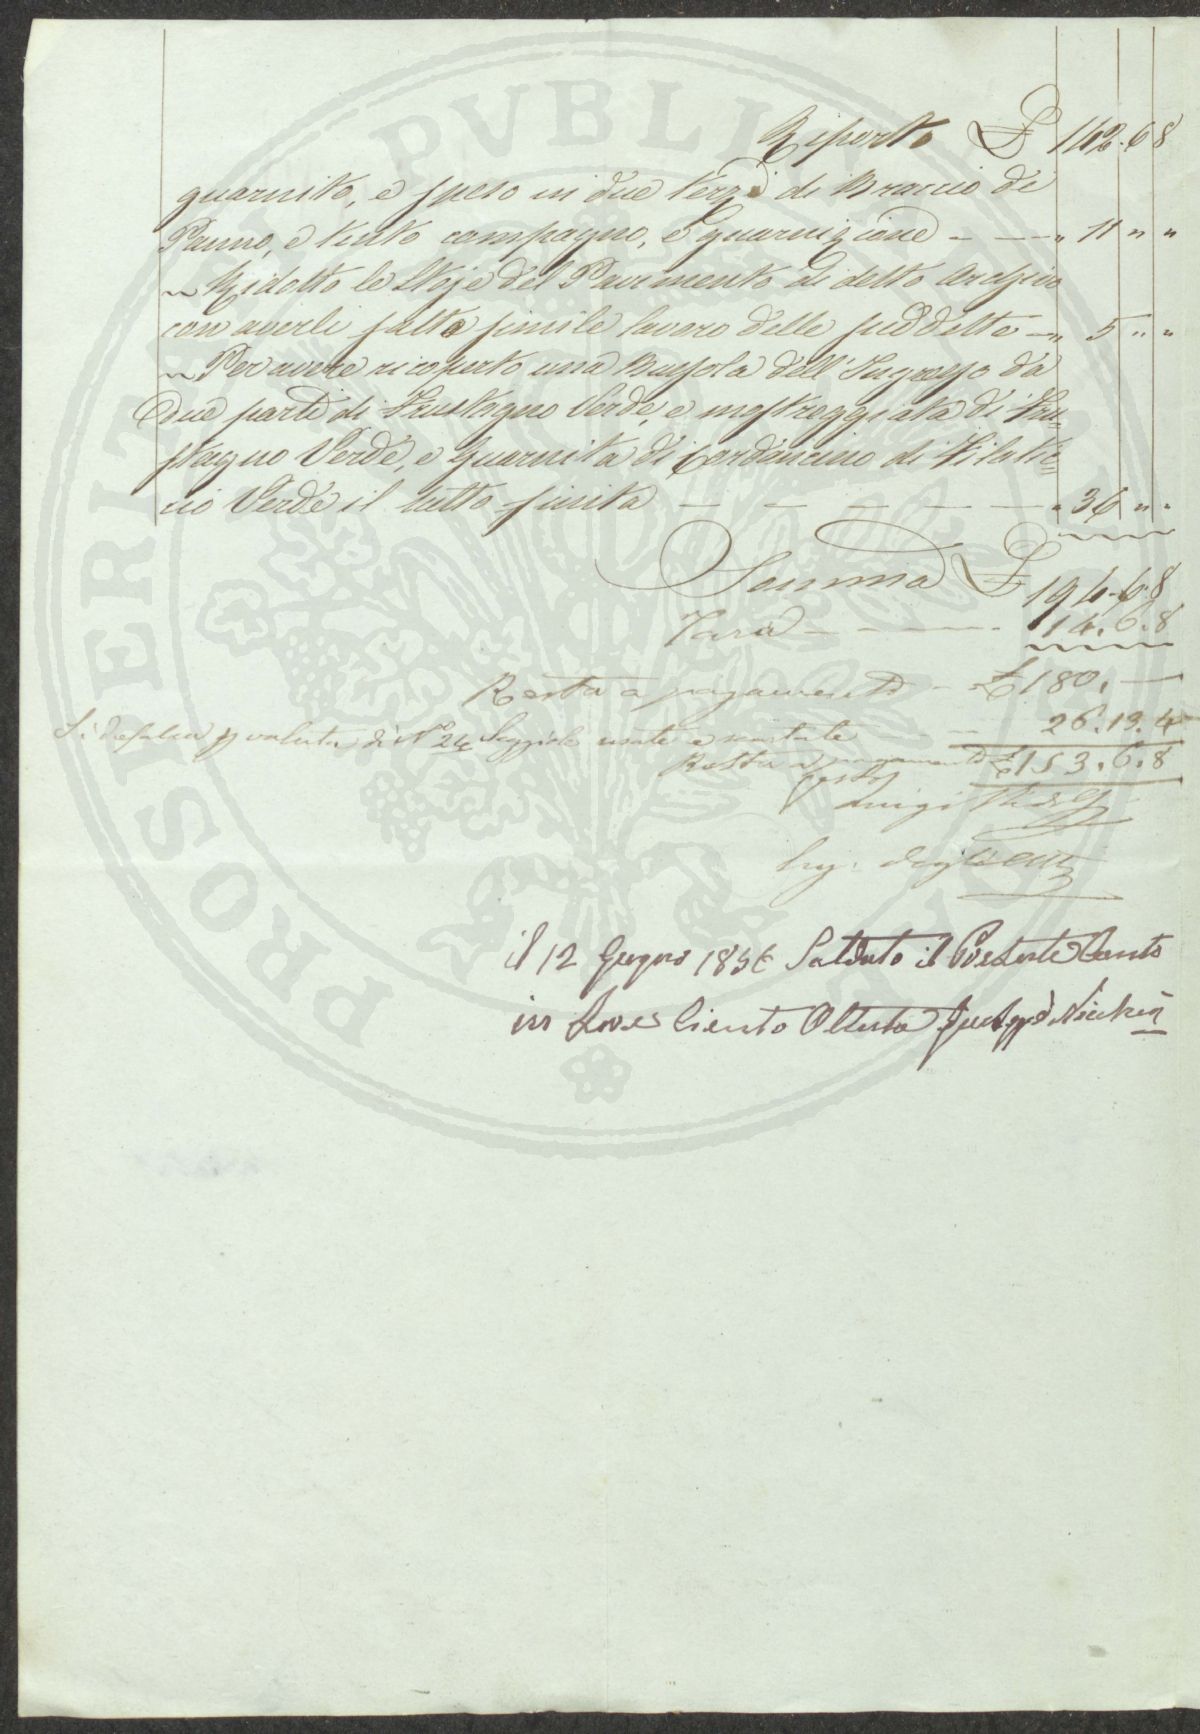 Riporto £ 142.6.8
guarnito, e speso in due terzi di Braccio di
Panno, e tinto compagno, e guarnizione — — " 11 " "
" Ridotto le Stoje del Pavimento di detto Archivio
con averli fatto simile lavoro delle suddette — " 5 " "
" Per avere ricoperto una Bussola dell'Ingresso da
due parti di Frustagno Verde, e mostreggiata di Fru=
stagno Verde, e Guarnita di Cordoncino di Filatic=
cio Verde il tutto finita — — — — — " 36 " "
Somma £ 194.6.8
Tara — — — 14.6.8
Resta a pagamento — £ 180. —
Si defalca p valuta di N° 24 Seggiole usate e scartate — — 26.13.4
Resta a pagamento £ 153.6.8
Luigi
Ing.
il 12 Giugno 1836 Saldato il Presente Conto
in Lire Ciento
PROSPERITATI PVBLICAE